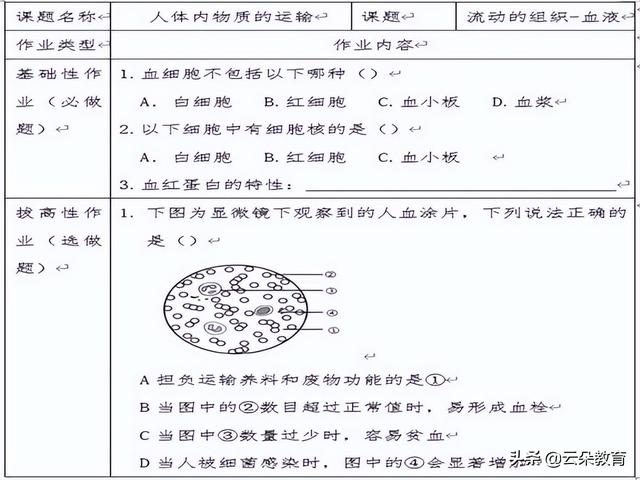 课题名称 人体内物质的运输 课题 流动的组织-血液
作业类型 作业内容
基础性作业（必做题）
1. 血细胞不包括以下哪种（）
A. 白细胞 B. 红细胞 C. 血小板 D. 血浆
2. 以下细胞中有细胞核的是（）
A. 白细胞 B. 红细胞 C. 血小板
3. 血红蛋白的特性：
拔高性作业（选做题）
1. 下图为显微镜下观察到的人血涂片，下列说法正确的
是（）
②
③
④
①
A 担负运输养料和废物功能的是①
B 当图中的②数目超过正常值时，易形成血栓
C 当图中③数量过少时，容易贫血
D 当人被细菌感染时，图中的④会显著增
头条 @云朵教育